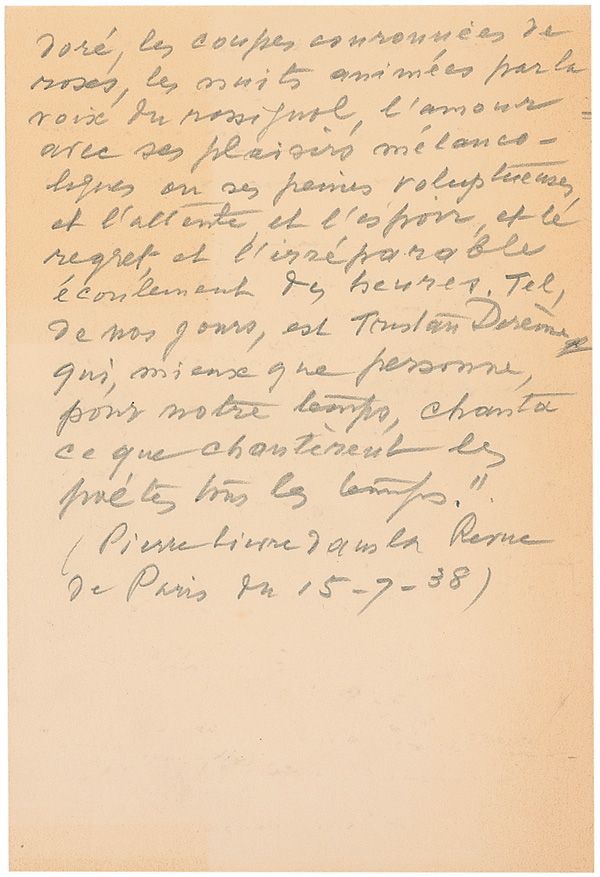 doré, les coupes couronnées de
roses, les nuits animées par la
voix du rossignol, l'amour
avec ses plaisirs mélanco-
liques ou ses peines voluptueuses,
et l'attente, et l'espoir, et le
regret, et l'irréparable
écoulement des heures. Tel,
de nos jours, est Tristan Derème
qui, mieux que personne,
pour notre temps, chanta
ce que chantèrent les
poètes tous les temps."
(Pierre Lièvre dans la Revue
de Paris du 15-7-38)